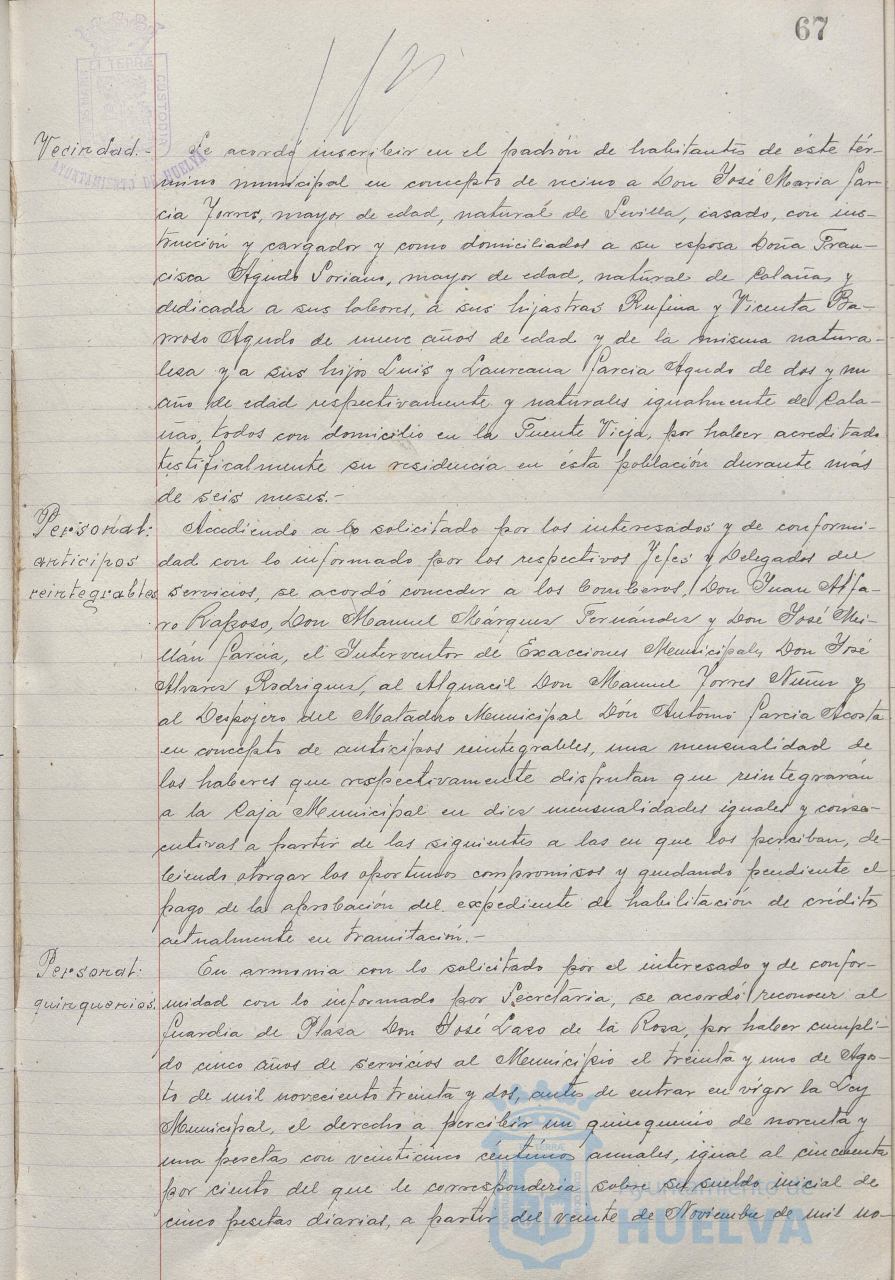 67
Vecindad.- Se acordó inscribir en el padrón de habitantes de éste tér-
mino municipal en concepto de vecino a Don José Maria Gar-
cia Torres, mayor de edad, natural de Sevilla, casado, con ins-
trucción y cargador y como domiciliados a su esposa Doña Fran-
cisca Agudo Soriano, mayor de edad, natural de Calañas y
dedicada a sus labores, a sus hijastras Rufina y Vicenta Ba-
rroso Agudo de nueve años de edad y de la misma natura-
leza y a sus hijos Luis y Laureana Garcia Agudo de dos y un
año de edad respectivamente y naturales igualmente de Cala-
ñas, todos con domicilio en la Fuente Vieja, por haber acreditado
testificalmente su residencia en ésta población durante más
de seis meses.-
Personal: Accediendo a lo solicitado por los interesados y de conformi-
anticipos dad con lo informado por los respectivos Jefes y Delegados del
reintegrables servicios, se acordó conceder a los Bomberos, Don Juan Alfa-
ro Raposo, Don Manuel Márquez Fernández y Don José Mi-
llán García, el Interventor de Exacciones Municipales Don José
Alvarez Rodriguez, al Alguacil Don Manuel Torres Nuñez y
al Despojero del Matadero Municipal Dón Antonio Garcia Acosta
en concepto de anticipos reintegrables, una mensualidad de
los haberes que respectivamente disfrutan que reintegrarán
a la Caja Municipal en diez mensualidades iguales y conse-
cutivas a partir de las siguientes a las en que los perciban, de-
biendo otorgar los oportunos compromisos y quedando pendiente el
pago de la aprobación del expediente de habilitación de créditos
actualmente en tramitación.-
Personal: En armonia con lo solicitado por el interesado y de confor-
quinquenios. midad con lo informado por Secretaria, se acordó reconocer al
Guardia de Plaza Don José Lazo de la Rosa, por haber cumpli-
do cinco años de servicios al Municipio el treinta y uno de Agos-
to de mil novecientos treinta y dos, antes de entrar en vigor la Ley
Municipal, el derecho a percibir un quinquenio de noventa y
una pesetas con veinticinco céntimos anuales, igual al cincuenta
por ciento del que le corresponderia sobre su sueldo inicial de
cinco pesetas diarias, a partir del veinte de Noviembre de mil no-
AYUNTAMIENTO DE HUELVA
Ayuntamiento de
HUELVA